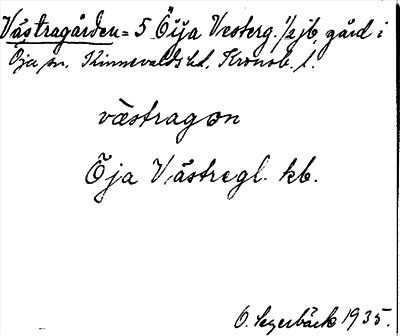 Västragården = 5 Öija Vesterg. 1/2 jb. gård i
Öja sn. Kinnevalds hd. Kronob. l.
västragon
Öja Västregl. kb.
O. Segerbäck 1935.